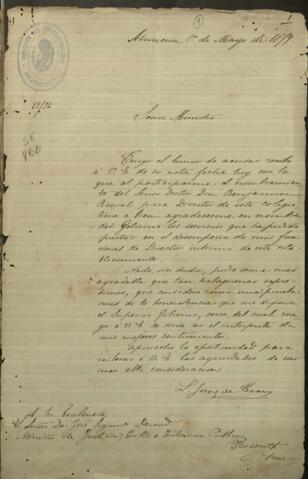 1
Asuncion 1º de Mayo de 1877
82/92
Señor Ministro
Tengo el honor de acusar recibo
á V. E. de su nota fecha hoy con
la que al participarme, el nombramien
to del Señor Doctor Don Benjamin
Aceval para Director de este Colegio,
tiene a bien agradecerme en nombre
del Gobierno los servicios que he podido
prestar en el desempeño de mis fun
ciones de Director interino de este esta
blecimiento.
Nada, sin duda, podia serme mas
agradable que tan halagüenas expre
siones, que considero como una prueba
mas de la benevolencia que me dispensa
el Superior Gobierno, cerca del cual rue
go á V. E. se sirva ser el interprete de
mis mejores sentimientos.
Aprovecho la oportunidad para
reiterar á V. E. las seguridades de mi
mas alta consideracion
A Su Excelencia
el Señor Don José Segundo Decoud
Ministro de Justicia, Culto e Instruccion Publica
Presente